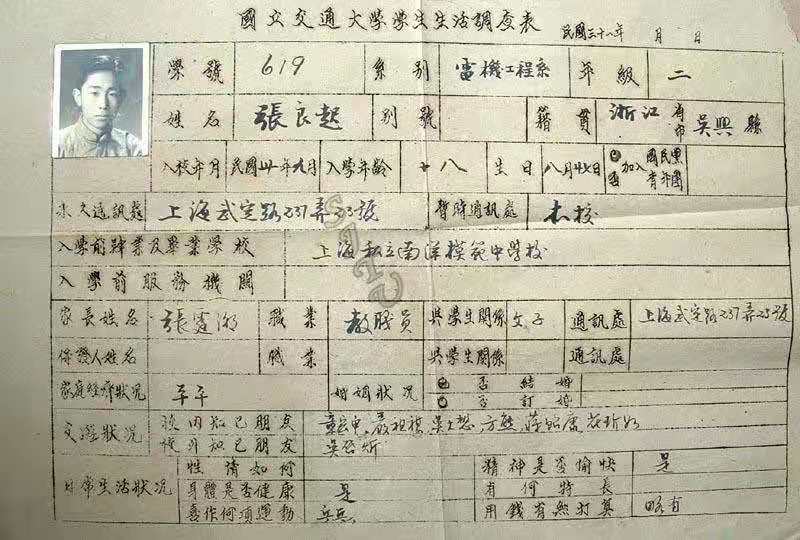 國立交通大學學生生活調查表
民國三十一年 月 日
學號 619 系別 電機工程系 年級 二
姓名 張良起 別號 籍貫 浙江 省市 吳興縣
入校年月 民國卅年九月 入學年齡 十八 生日 八月廿七日 已否加入國民黨青年團
永久通訊處 上海武定路237弄23號 暫時通訊處 本校
入學前肄業及畢業學校 上海私立南洋模範中學校
入學前服務機關
家長姓名 張 職業 教職員 與學生關係 父子 通訊處 上海武定路237弄23號
保證人姓名 職業 與學生關係 通訊處
家庭經濟狀況 平平 婚姻狀況 已否結婚
已否訂婚
交遊狀況 校內知己朋友
校外知己朋友 吳
日常生活狀況 性情如何 精神是否愉快 是
身體是否健康 是 有何特長
喜作何項運動 乒乓 用錢有無打算 略有